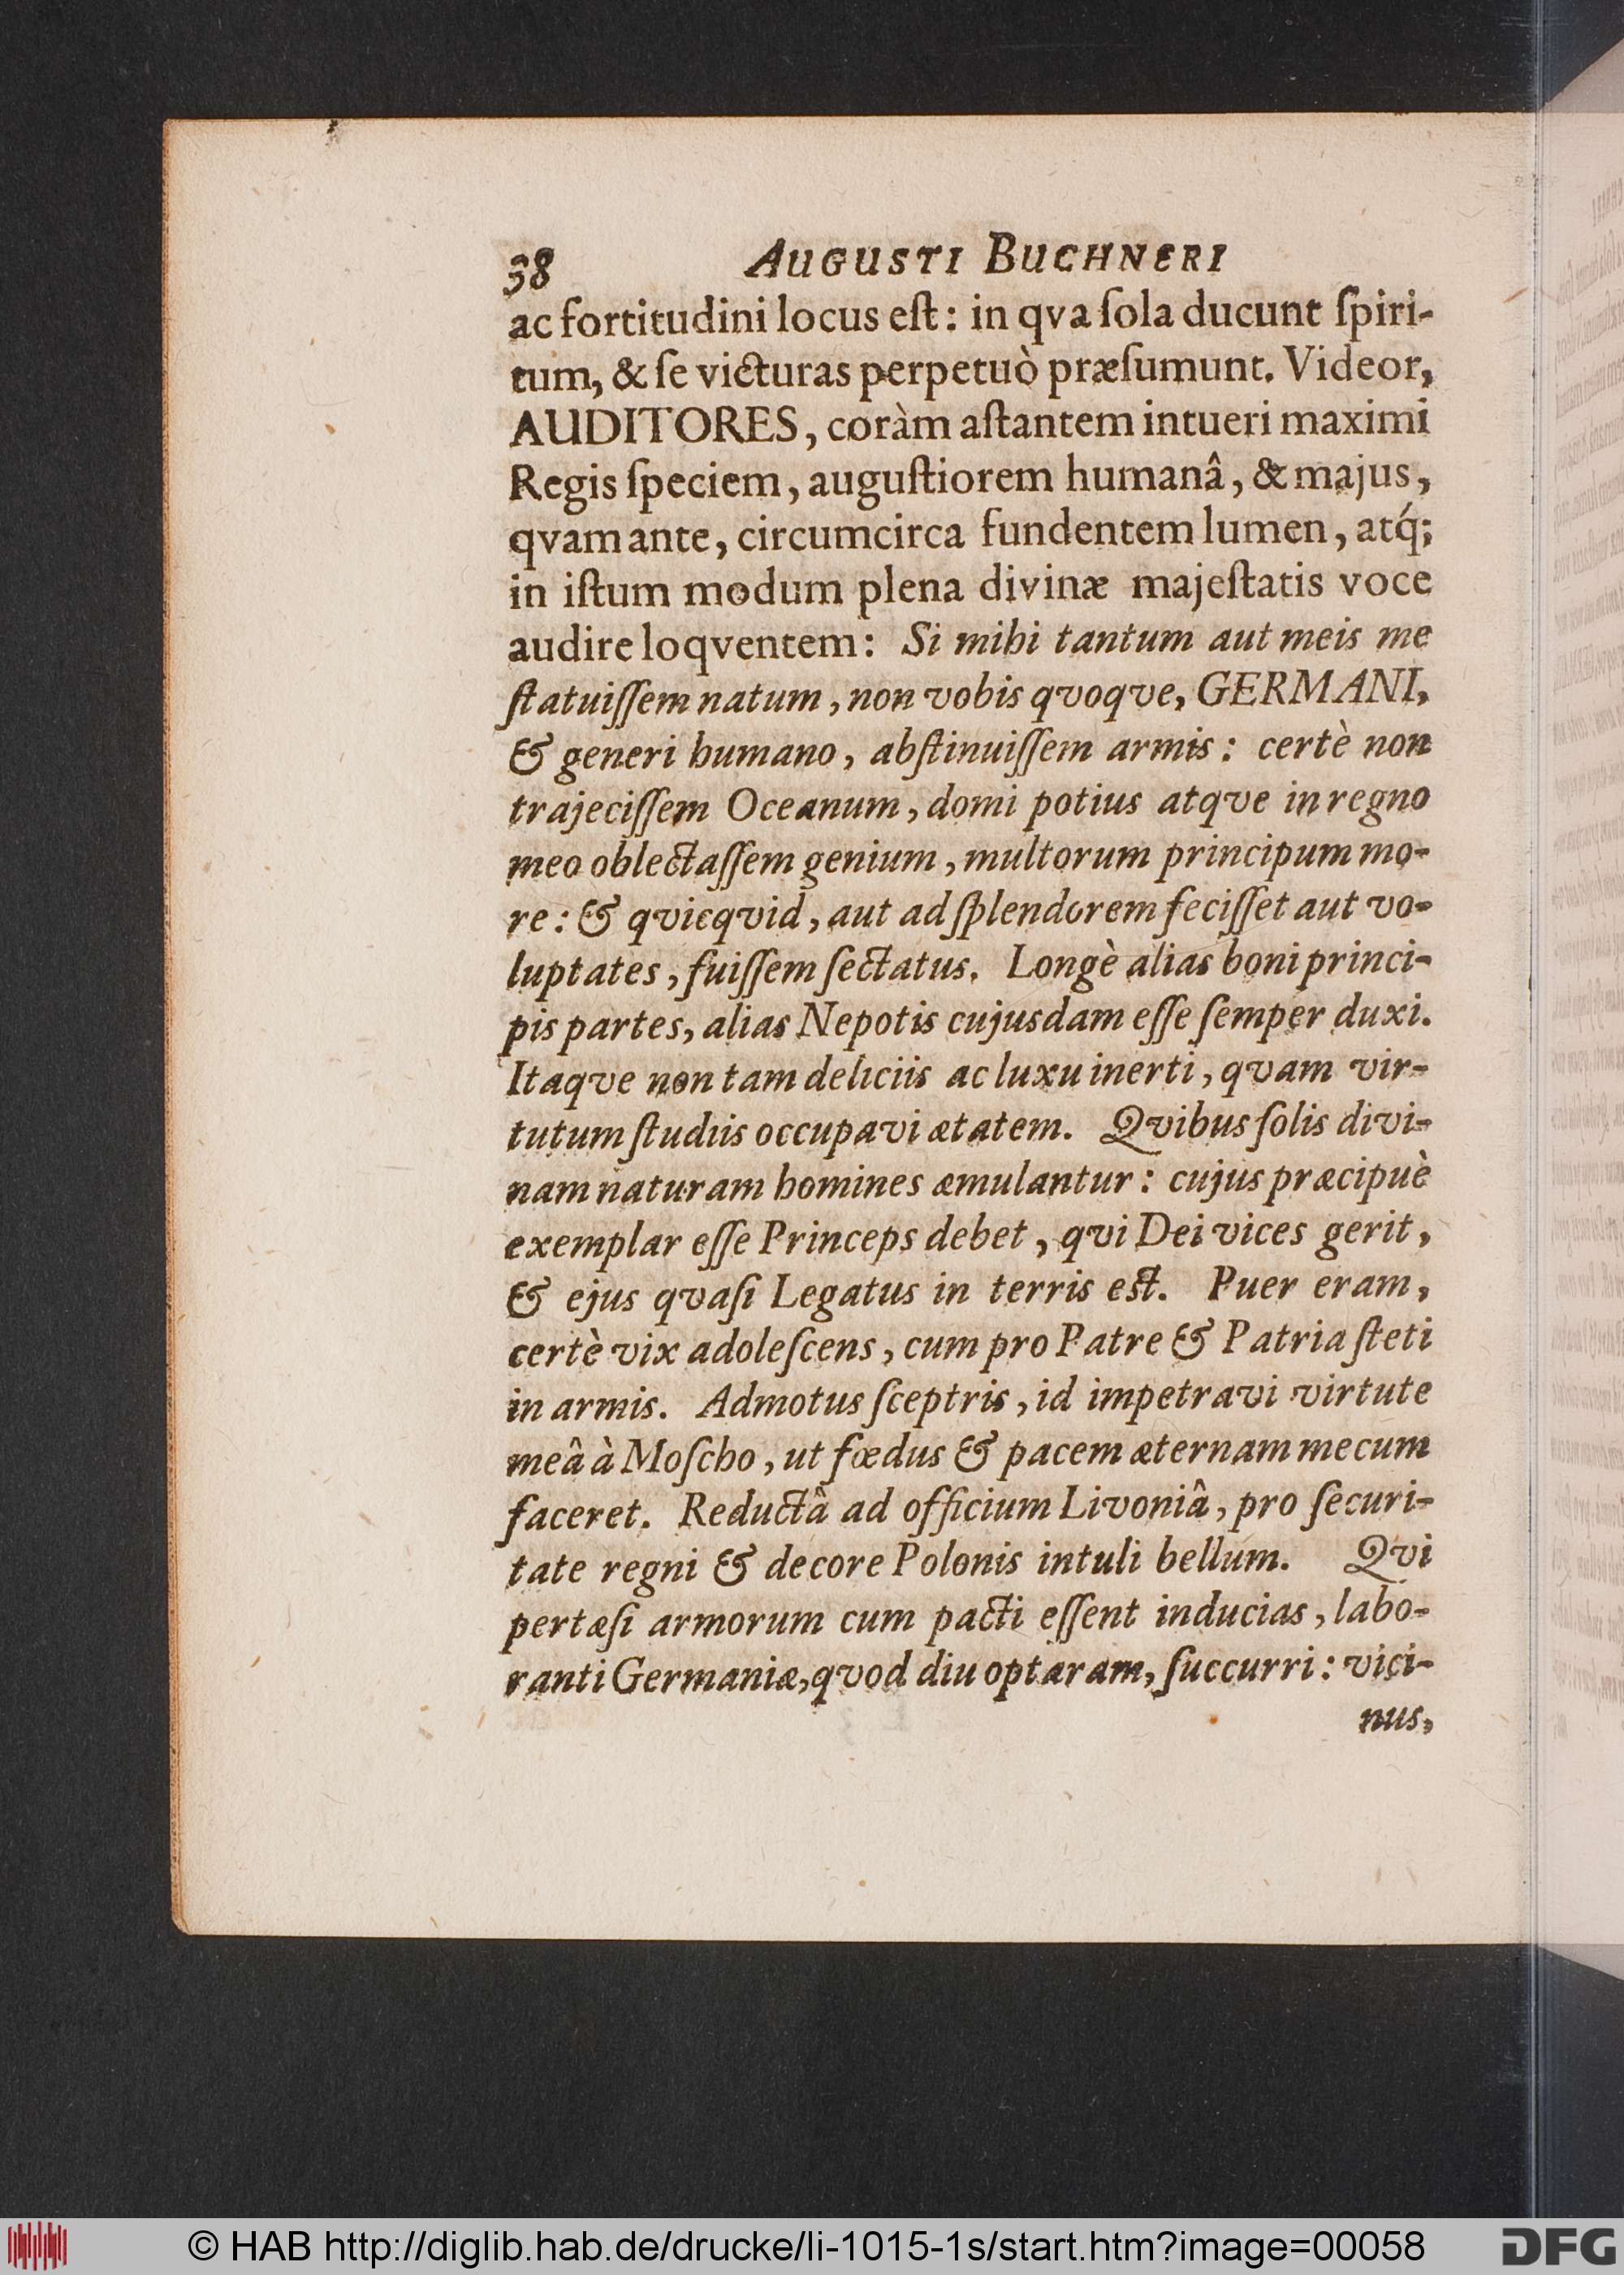 38 AUGUSTI BUCHNERI
ac fortitudini locus eſt: in qva ſola ducunt ſpiri-
tum, & ſe victuras perpetuò præſumunt. Videor,
AUDITORES, coràm aſtantem intueri maximi
Regis ſpeciem, auguſtiorem humanâ, & majus,
qvam ante, circumcirca fundentem lumen, atq́;
in iſtum modum plena divinæ majeſtatis voce
audire loqventem: Si mihi tantum aut meis me
ſtatuiſſem natum, non vobis qvoqve, GERMANI,
& generi humano, abſtinuiſſem armis: certè non
trajeciſſem Oceanum, domi potius atqve in regno
meo oblectaſſem genium, multorum principum mo-
re: & qvicqvid, aut ad ſplendorem feciſſet aut vo-
luptates, fuiſſem ſectatus. Longè alias boni princi-
pis partes, alias Nepotis cujusdam eſſe ſemper duxi.
Itaqve non tam deliciis ac luxu inerti, qvam vir-
tutum ſtudiis occupavi ætatem. Qvibus ſolis divi-
nam naturam homines æmulantur: cujus præcipuè
exemplar eſſe Princeps debet, qvi Dei vices gerit,
& ejus qvaſi Legatus in terris eſt. Puer eram,
certè vix adoleſcens, cum pro Patre & Patria ſteti
in armis. Admotus ſceptris, id impetravi virtute
meâ à Moſcho, ut fœdus & pacem æternam mecum
faceret. Reductâ ad officium Livoniâ, pro ſecuri-
tate regni & decore Polonis intuli bellum. Qvi
pertæſi armorum cum pacti eſſent inducias, labo-
ranti Germaniæ, qvod diu optaram, ſuccurri: vici-
nus,
© HAB http://diglib.hab.de/drucke/li-1015-1s/start.htm?image=00058
DFG